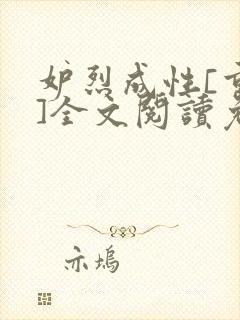 妒烈成性[重
]全文閱讀免
亦塢